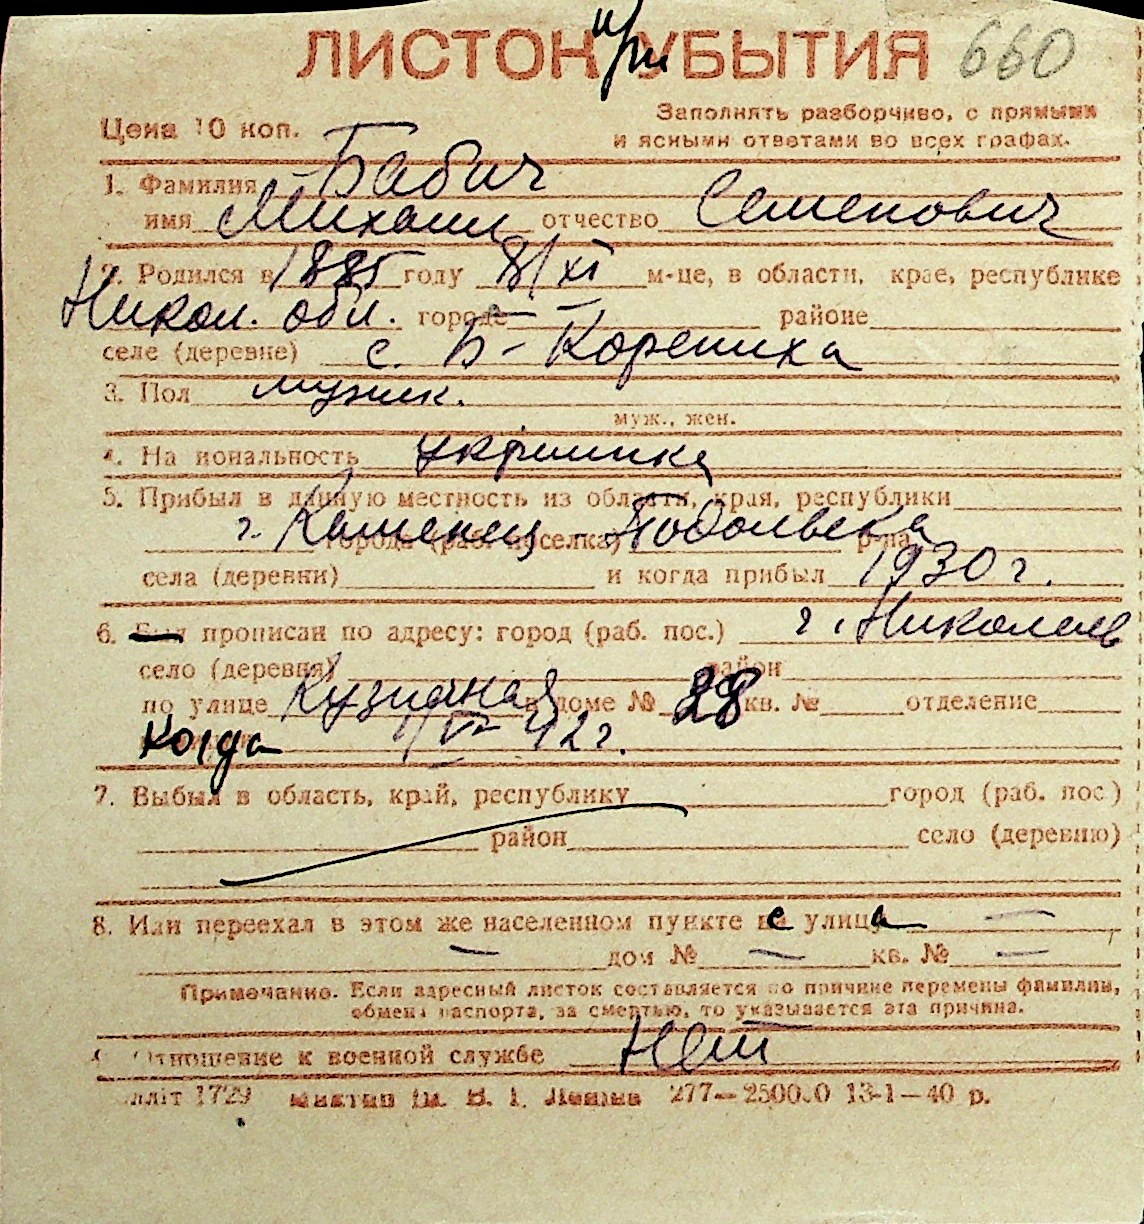 ЛИСТОК при УБЫТИЯ 660
Цена 10 коп.
Заполнять разборчиво, с прямыми
и ясными ответами во всех графах.
1. Фамилия Бабич
имя Михаил отчество Семенович
2. Родился в 1885 году 8/XI м-це, в области, крае, республике
Никол. обл. городе — районе
селе (деревне) с. Б-Корениха
3. Пол мужск.
муж., жен.
4. Национальность
5. Прибыл в данную местность из области, края, республики
г. Каменец-Подольска
города (раб. поселка) р-на
села (деревни) и когда прибыл 1930 г.
6. Был прописан по адресу: город (раб. пос.) г. Николаев
село (деревня) район
по улице Кузнечная в доме № 28 кв. № отделение
Когда 42 г.
7. Выбыл в область, край, республику город (раб. пос)
район село (деревню)
8. Или переехал в этом же населенном пункте с улица —
— дом № — кв. № —
Примечание. Если адресный листок составляется по причине перемены фамилии,
обмена паспорта, за смертью, то указывается эта причина.
Отношение к военной службе Нет
лліт 1729 ім. В. І. Леніна 277—25000 13-1—40 р.